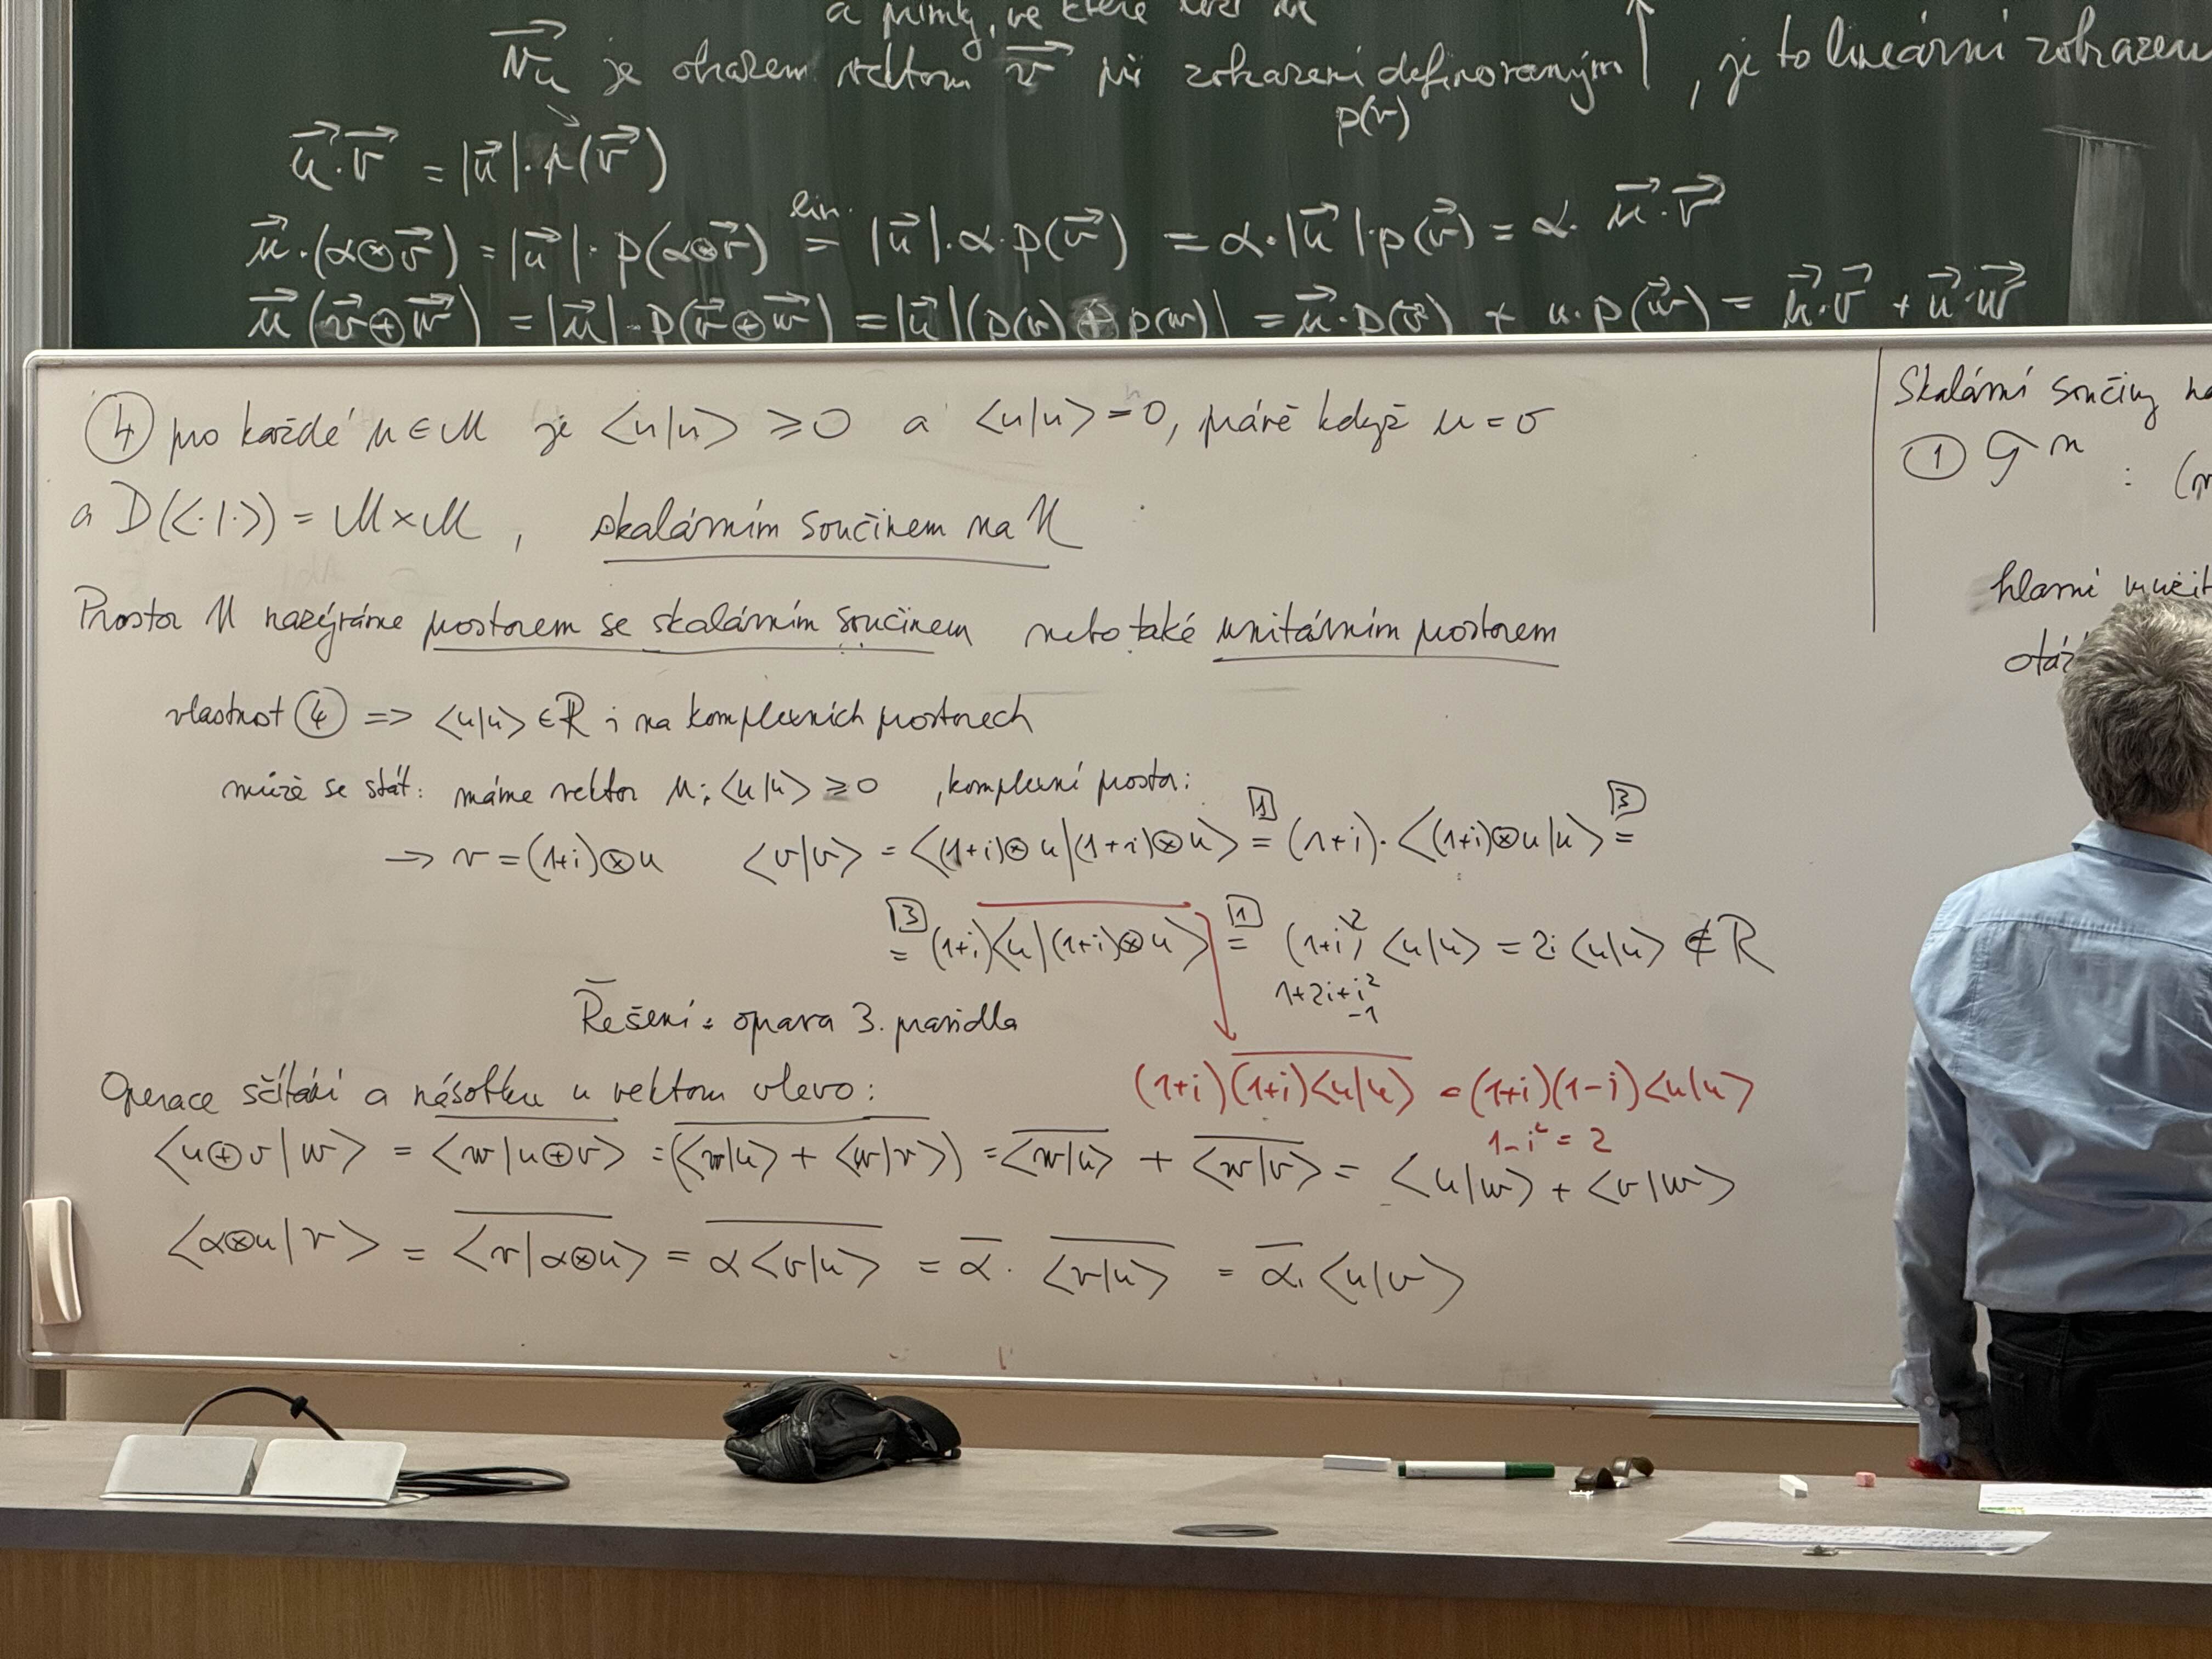 a přímky, ve které leží
v⃗ᵤ je obrazem vektoru v⃗ při zobrazení definovaným ↑, je to lineární zobrazen
p(v)
u⃗·v⃗ = |u⃗|·p(v⃗)
u⃗·(α⊗v⃗) = |u⃗|·p(α⊗v⃗) =^{lin.} |u⃗|·α·p(v⃗) = α·|u⃗|·p(v⃗) = α·u⃗·v⃗
u⃗(v⃗⊕w⃗) = |u⃗|·p(v⃗⊕w⃗) = |u⃗|(p(v)+p(w)) = u⃗·p(v⃗) + u·p(w⃗) = u⃗·v⃗ + u⃗·w⃗
④ pro každé u∈U je <u|u> ≥ 0 a <u|u> = 0, právě když u = σ
a D(<·|·>) = U×U, skalárním součinem na U
Prostor U nazýváme prostorem se skalárním součinem nebo také unitárním prostorem
vlastnost ④ => <u|u> ∈ R i na komplexních prostorech
může se stát: máme vektor u; <u|u> ≥ 0, komplexní prostor:
→ v = (1+i)⊗u <v|v> = <(1+i)⊗u|(1+i)⊗u> =^{[1]} (1+i)·<(1+i)⊗u|u> =^{[3]}
=^{[3]} (1+i)<u|(1+i)⊗u> =^{[1]} (1+i)² <u|u> = 2i <u|u> ∉ R
1+2i+i²
-1
Řešení: oprava 3. pravidla
(1+i)\overline{(1+i)<u|u>} = (1+i)(1-i)<u|u>
1-i² = 2
Operace sčítání a násobku u vektoru vlevo:
<u⊕v|w> = \overline{<w|u⊕v>} = \overline{(<w|u> + <w|v>)} = \overline{<w|u>} + \overline{<w|v>} = <u|w> + <v|w>
<α⊗u|v> = \overline{<v|α⊗u>} = \overline{α<v|u>} = \overline{α}·\overline{<v|u>} = \overline{α}·<u|v>
Skalární součiny na
① Gⁿ : (
hlavní
otáz